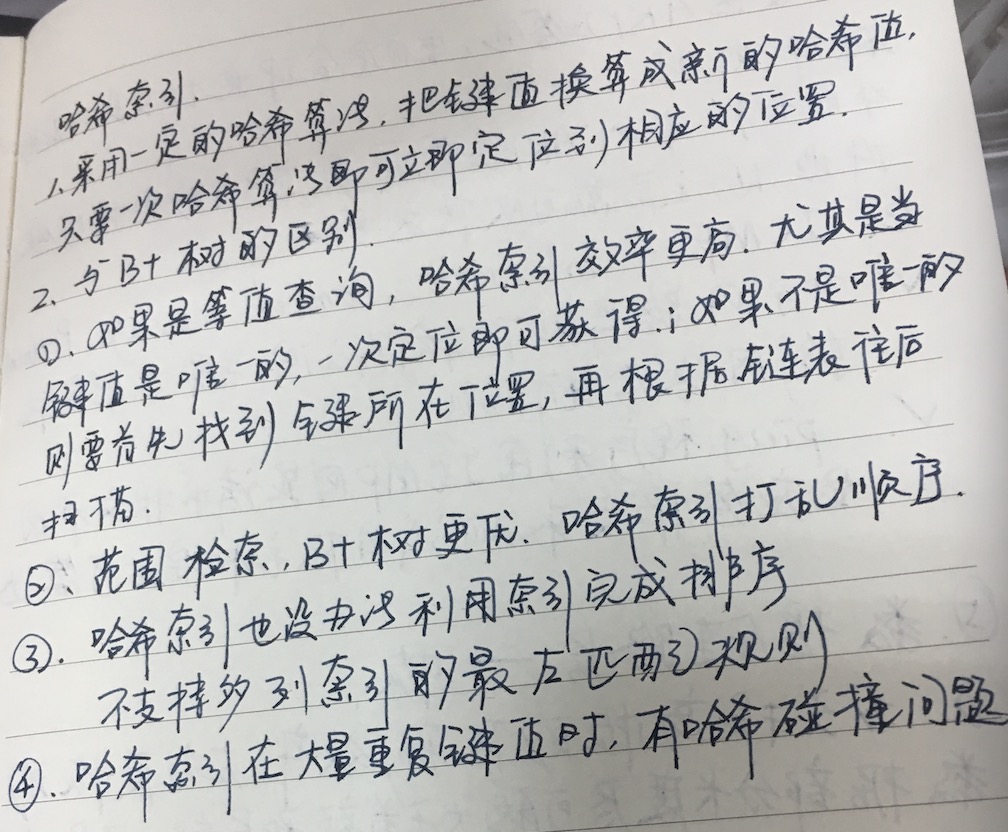 哈希索引.
1、采用一定的哈希算法,把键值换算成新的哈希值,
只要一次哈希算法即可立即定位到相应的位置.
2、与B+树的区别.
①、如果是等值查询,哈希索引效率更高.尤其是当
键值是唯一的,一次定位即可获得.;如果不是唯一的
则要首先找到键所在位置,再根据链表往后
扫描.
②、范围检索,B+树更优.哈希索引打乱顺序.
③.哈希索引也没办法利用索引完成排序
不支持多列索引的最左匹配规则
④.哈希索引在大量重复键值时,有哈希碰撞问题